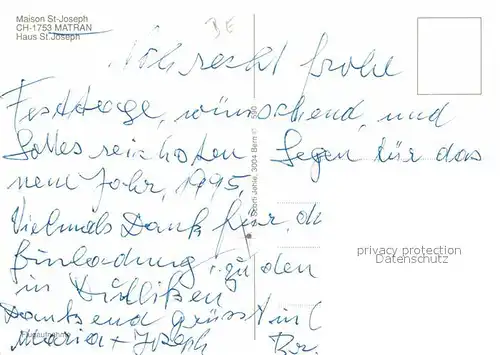 Maison St-Joseph
CH-1753 MATRAN
Haus St. Joseph
recht frohe
Festtage, wünschend, und
Gottes reichsten Segen für das
neue Jahr, 1995,
Vielmals Dank für, die
Einladung, zu den
in
Dankend grüsst in
Maria + Joseph Br.
3004 Bern
privacy protection
Datenschutz